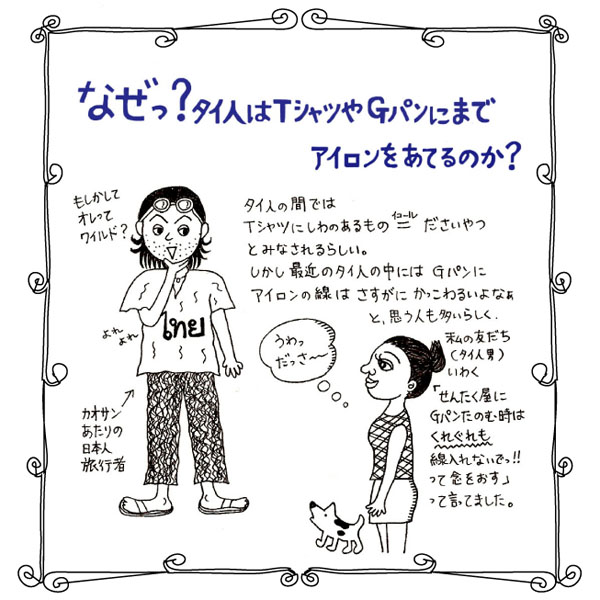 なぜっ?タイ人はTシャツやGパンにまで
アイロンをあてるのか?
もしかして
オレって
ワイルド?
タイ人の間では
Tシャツにしわのあるもの イコール = ださいやつ
とみなされるらしい。
しかし最近のタイ人の中には Gパンに
アイロンの線は さすがに かっこわるいよなぁ
と、思う人も多いらしく、
私の友だち
(タイ人男)
いわく
「せんたく屋に
Gパンたのむ時は
くれぐれも
線入れないでっ!!
って念をおす」
って言ってました。
うわっ
だっさ〜
ไทย
よれ
よれ
カオサン
あたりの
日本人
旅行者